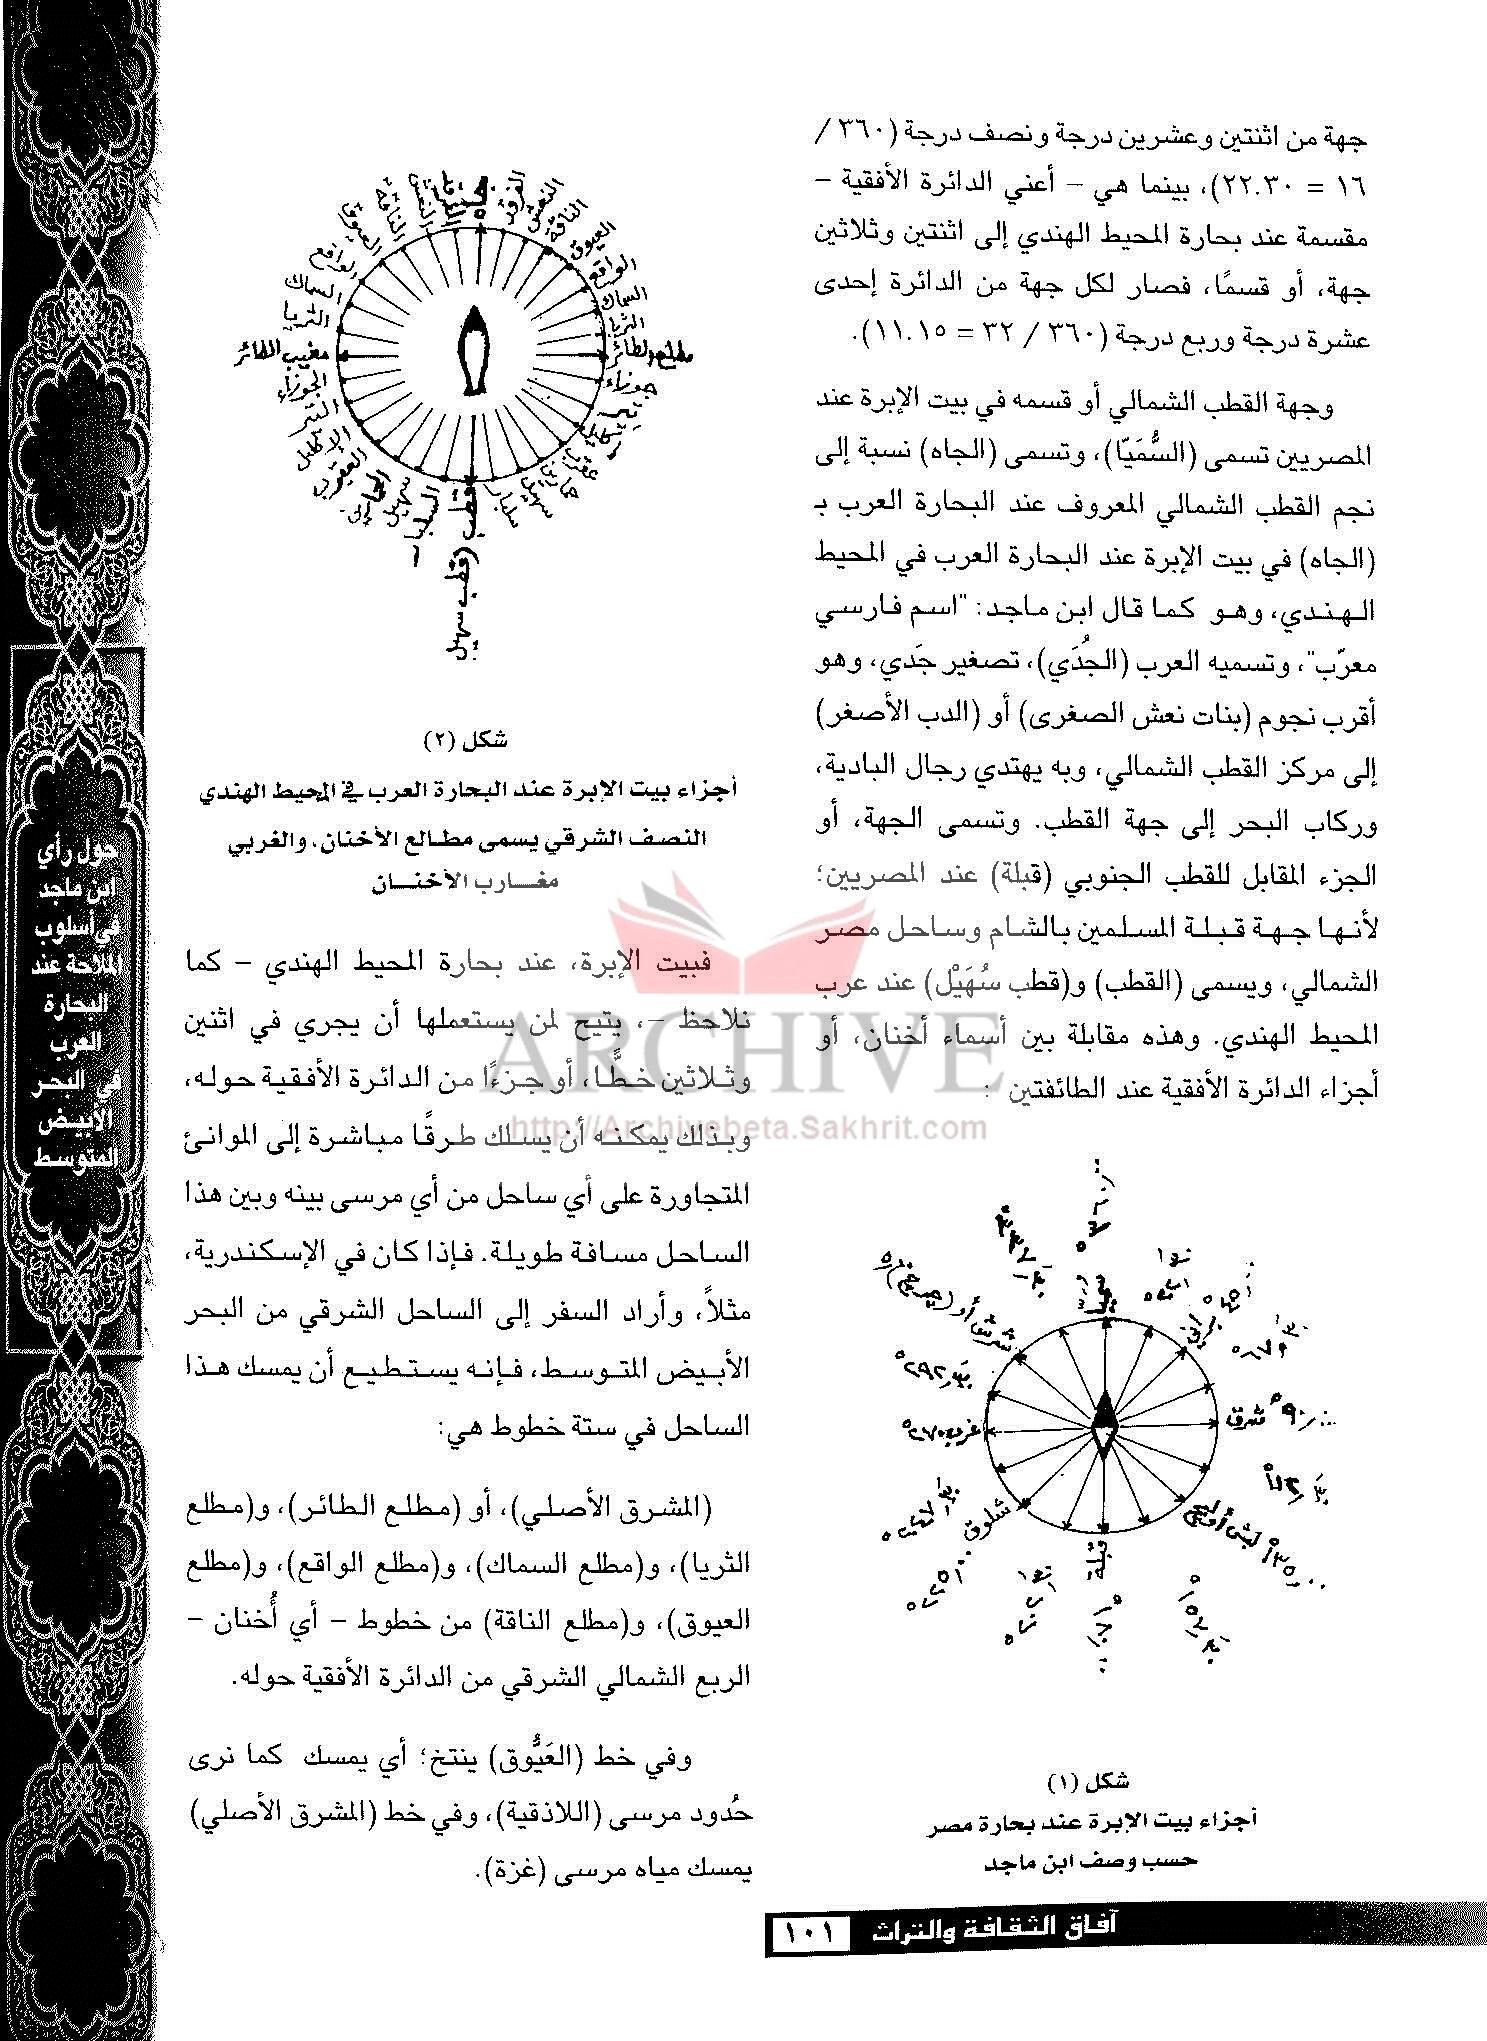 جهة من اثنتين وعشرين درجة ونصف درجة (٣٦٠ /
١٦ = ٢٢.٣٠)، بينما هي – أعني الدائرة الأفقية –
مقسمة عند بحارة المحيط الهندي إلى اثنتين وثلاثين
جهة، أو قسمًا، فصار لكل جهة من الدائرة إحدى
عشرة درجة وربع درجة (٣٦٠ / ٣٢ = ١١.١٥).
وجهة القطب الشمالي أو قسمه في بيت الإبرة عند
المصريين تسمى (السُّمَيّا)، وتسمى (الجاه) نسبة إلى
نجم القطب الشمالي المعروف عند البحارة العرب بـ
(الجاه) في بيت الإبرة عند البحارة العرب في المحيط
الهندي، وهو كما قال ابن ماجد: "اسم فارسي
معرّب"، وتسميه العرب (الجُدَي)، تصغير جَدي، وهو
أقرب نجوم (بنات نعش الصغرى) أو (الدب الأصغر)
إلى مركز القطب الشمالي، وبه يهتدي رجال البادية،
وركاب البحر إلى جهة القطب. وتسمى الجهة، أو
الجزء المقابل للقطب الجنوبي (قبلة) عند المصريين؛
لأنها جهة قبلة المسلمين بالشام وساحل مصر
الشمالي، ويسمى (القطب) و(قطب سُهَيْل) عند عرب
المحيط الهندي. وهذه مقابلة بين أسماء أخنان، أو
أجزاء الدائرة الأفقية عند الطائفتين :
شرق ٩٠
غرب ٢٧٠
شلوق
قبلة
شكل (١)
أجزاء بيت الإبرة عند بحارة مصر
حسب وصف ابن ماجد
جاه
الفرقد
النعش
الناقة
العيوق
الواقع
السماك
الثريا
مطلع الطائر
جوزاء
عقرب
سهيل
قطب (قطب سهيل)
سهيل
العقرب
الإكليل
التير
الجوزاء
مغيب الطائر
الثريا
السماك
الواقع
العيوق
الناقة
النعش
شكل (٢)
أجزاء بيت الإبرة عند البحارة العرب في المحيط الهندي
النصف الشرقي يسمى مطالع الأخنان، والغربي
مغارب الأخنان
فبيت الإبرة، عند بحارة المحيط الهندي – كما
نلاحظ –، يتيح لمن يستعملها أن يجري في اثنين
وثلاثين خطًّا، أو جزءًا من الدائرة الأفقية حوله،
وبذلك يمكنه أن يسلك طرقًا مباشرة إلى الموانئ
المتجاورة على أي ساحل من أي مرسى بينه وبين هذا
الساحل مسافة طويلة. فإذا كان في الإسكندرية،
مثلاً، وأراد السفر إلى الساحل الشرقي من البحر
الأبيض المتوسط، فإنه يستطيع أن يمسك هذا
الساحل في ستة خطوط هي:
(المشرق الأصلي)، أو (مطلع الطائر)، و(مطلع
الثريا)، و(مطلع السماك)، و(مطلع الواقع)، و(مطلع
العيوق)، و(مطلع الناقة) من خطوط – أي أُخنان –
الربع الشمالي الشرقي من الدائرة الأفقية حوله.
وفي خط (العَيُّوق) ينتخ؛ أي يمسك كما نرى
حُدود مرسى (اللاذقية)، وفي خط (المشرق الأصلي)
يمسك مياه مرسى (غزة).
حول رأي
ابن ماجد
في أسلوب
الملاحة عند
البحارة
العرب
في البحر
الأبيض
المتوسط
ARCHIVE
http://Archivebeta.Sakhrit.com
آفاق الثقافة والتراث ١٠١